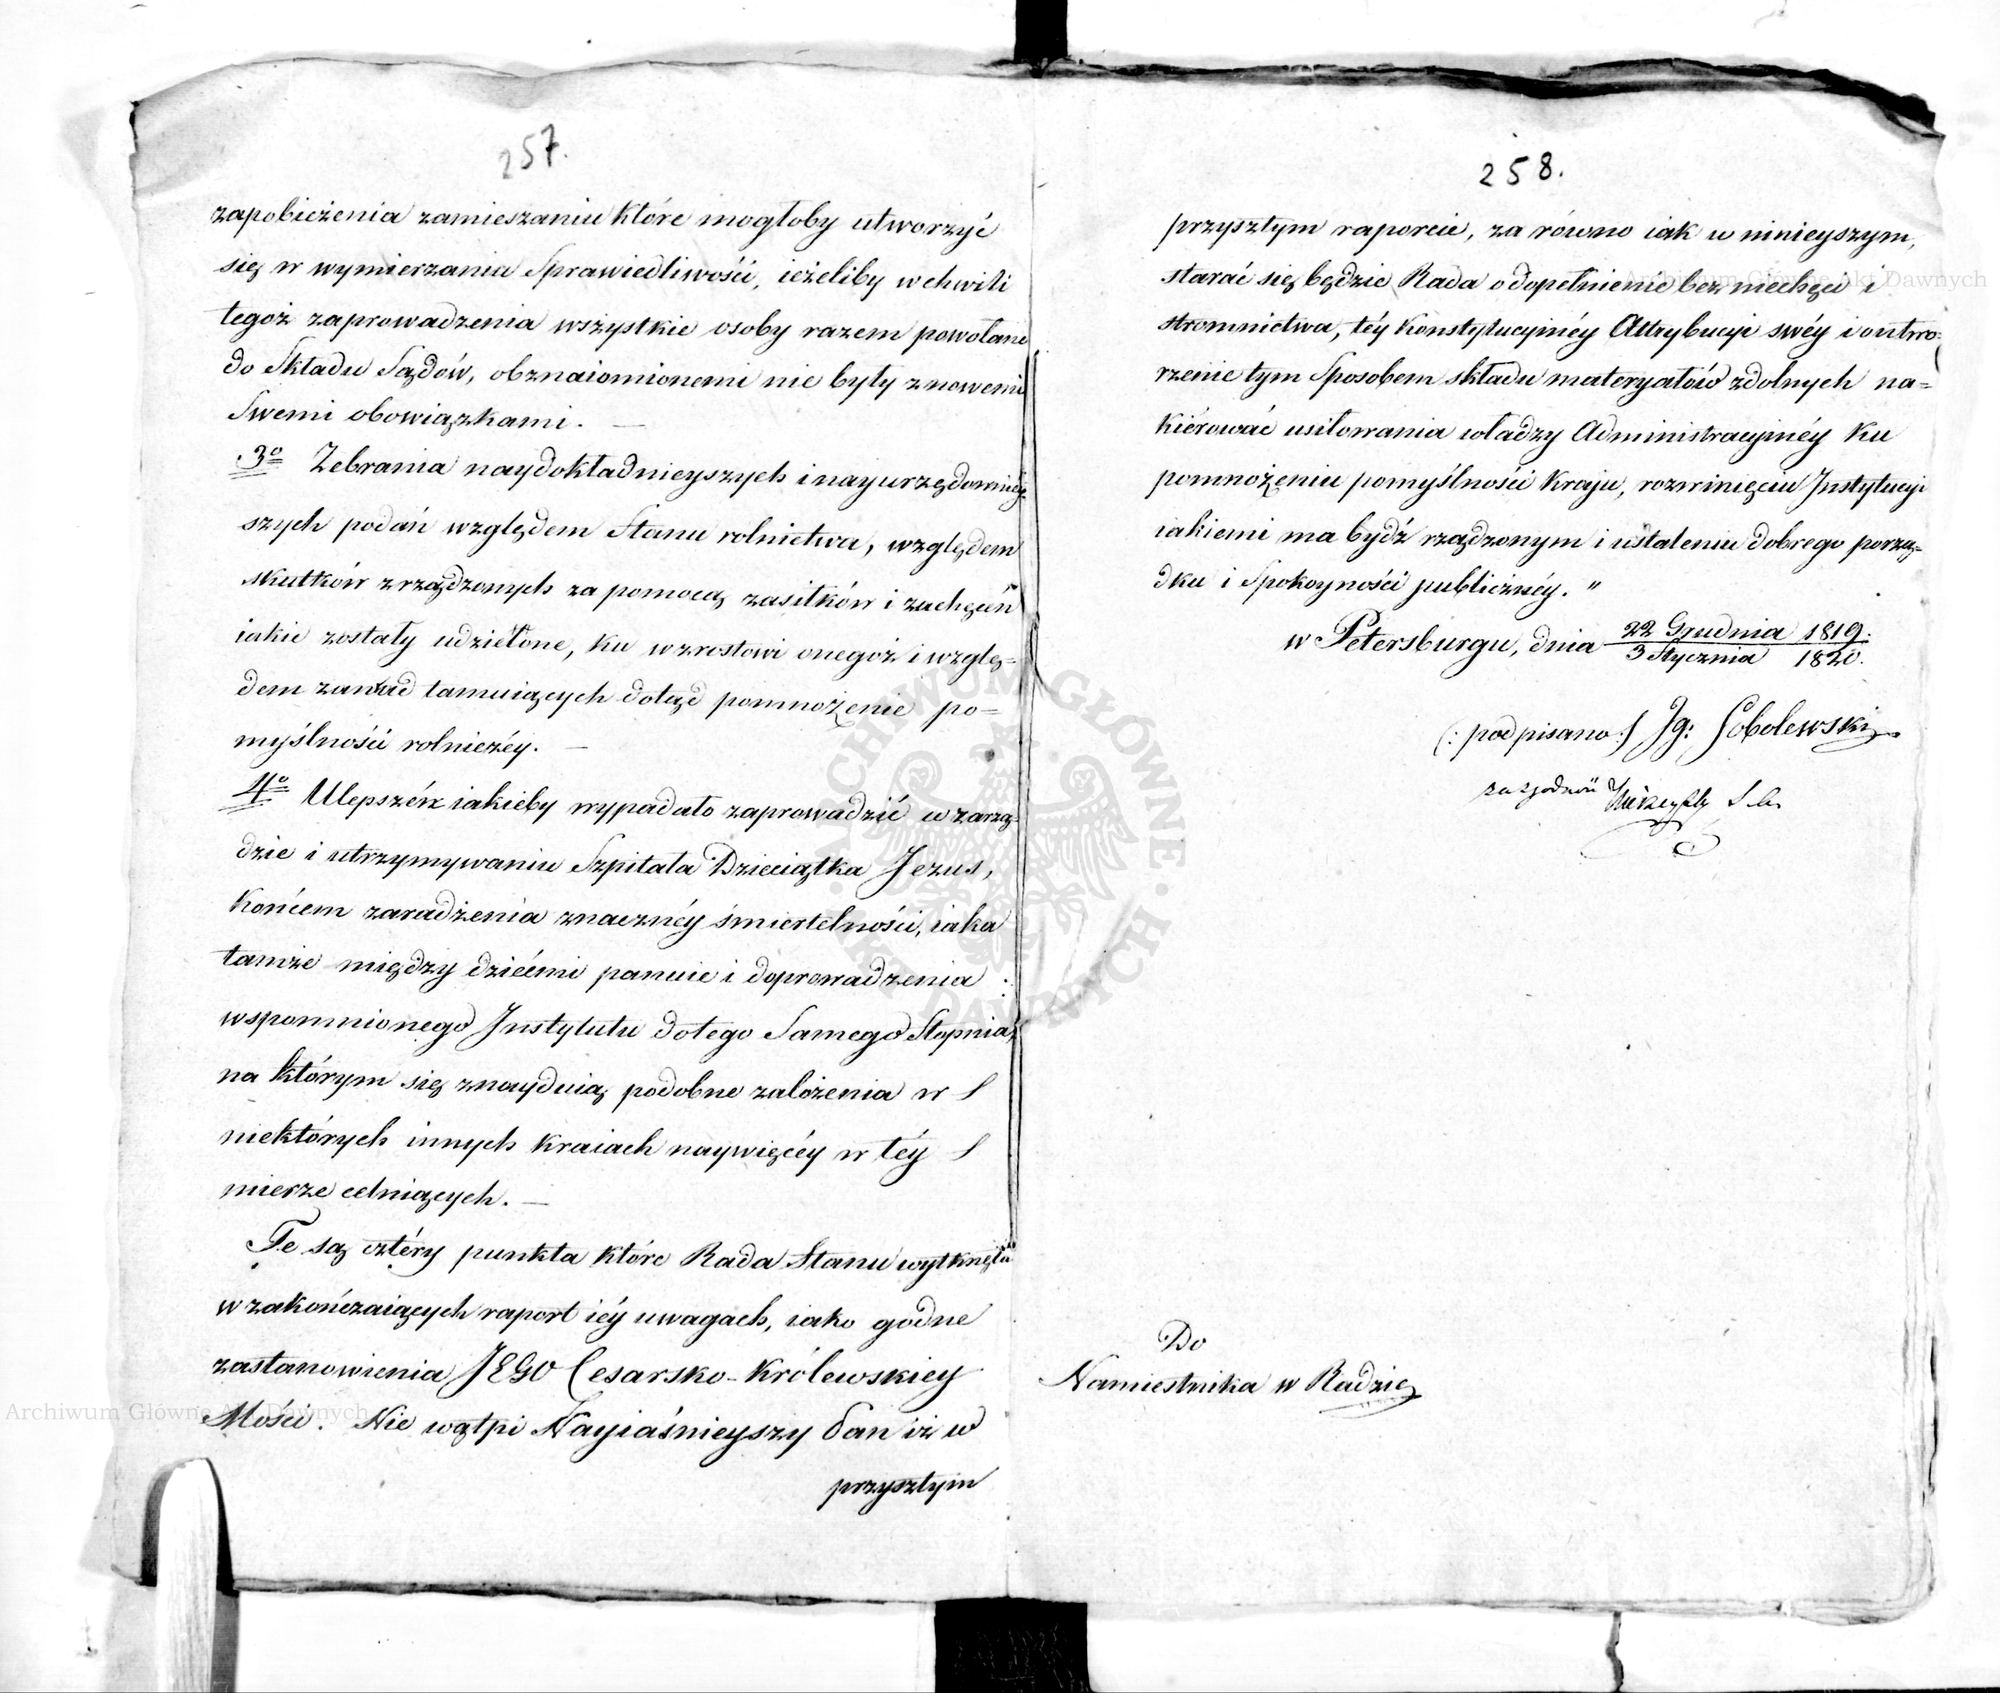 257.
zapobieżenia zamieszaniu które mogłoby utworzyć
się w wymierzania Sprawiedliwości, ieżeliby w chwili
tegoż zaprowadzenia wszystkie osoby razem powołane
do Składu Sądów, obznaiomionemi nie były z nowemi
Swemi obowiązkami. —
3º Zebrania naydokładnieyszych i nayurzędowniey
szych podań względem Stanu rolnictwa, względem
skutków zrządzonych za pomocą zasiłków i zachęceń
iakie zostały udzielone, ku wzrostowi onegoż i wzglę=
dem zawad tamuiących dotąd pomnożenie po=
myślności rolniczéy. —
4º Ulepszéń iakieby wypadało zaprowadzić w zarzą=
dzie i utrzymywaniu Szpitala Dzieciątka Jezus,
końcem zaradzenia znacznéy śmiertelności, iaka
tamże między dziećmi panuie i doprowadzenia
wspomnionego Instytutu do tego Samego Stopnia,
na którym się znayduią podobne założenia w
niektórych innych kraiach naywięcéy w téy
mierze celuiących. —
Te są cztéry punkta które Rada Stanu wytknęła
w zakończaiących raport iéy uwagach, iako godne
zastanowienia JEGO Cesarsko-Królewskiey
Mości. Nie wątpi Nayiaśnieyszy Pan iż w
przyszłym
258.
przyszłym raporcie, za równo iak w ninieyszym,
starać się będzie Rada o dopełnienie bez niechęci i
stronnictwa, téy Konstytucyinéy Attrybucyi swéy i o utwo=
rzenie tym Sposobem składu materyałów zdolnych na=
kiérować usiłowania władzy Administracyinéy ku
pomnożeniu pomyślności Kraju, rozwinięciu Instytucyi
iakiemi ma bydź rządzonym i ustaleniu dobrego porzą=
dku i Spokoyności publicznéy. "
w Petersburgu, dnia 22 Grudnia 1819.
3 Stycznia 1820.
(: podpisano :) Ig: Sobolewski
za zgodność
Do
Namiestnika w Radzie
Archiwum Główne Akt Dawnych
Archiwum Główne Akt Dawnych
ARCHIWUM GŁÓWNE AKT DAWNYCH